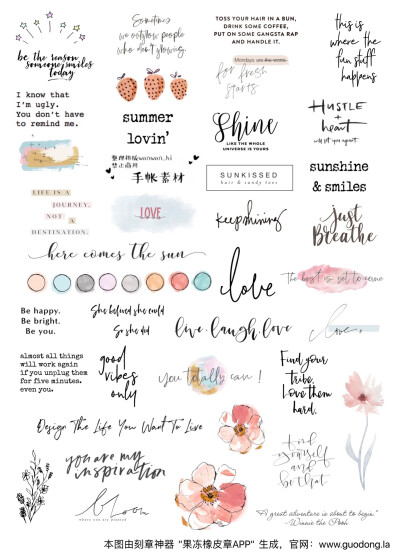 be the reason
someone smiles
today
Sometimes
we outgrow people
who don't growing.
TOSS YOUR HAIR IN A BUN,
DRINK SOME COFFEE,
PUT ON SOME GANGSTA RAP
AND HANDLE IT.
this is
where the
fun stuff
happens
Mondays are
for fresh
starts
I know that
I'm ugly.
You don't have
to remind me.
summer
lovin'
Shine
LIKE THE WHOLE
UNIVERSE IS YOURS
HUSTLE +
heart
will set you apart
整理排版wanwan_hi
禁止商用
手帐素材
SUNKISSED
hair & candy toes
sunshine
& smiles
LIFE IS A
JOURNEY,
NOT A
DESTINATION.
LOVE
keep shining
just
Breathe
here comes the sun
love
The best is yet to come
Be happy.
Be bright.
Be you.
She believed she could
So she did
live.laugh.love
love,
almost all things
will work again
if you unplug them
for five minutes.
even you.
good
vibes
only
you totally can!
Find your
tribe.
Love them
hard.
Design The Life You Want To Live
you are my
inspiration
find
yourself
and
be that
bloom
where you are planted
"A great adventure is about to begin."
-Winnie the Pooh
本图由刻章神器"果冻橡皮章APP"生成，官网：www.guodong.la